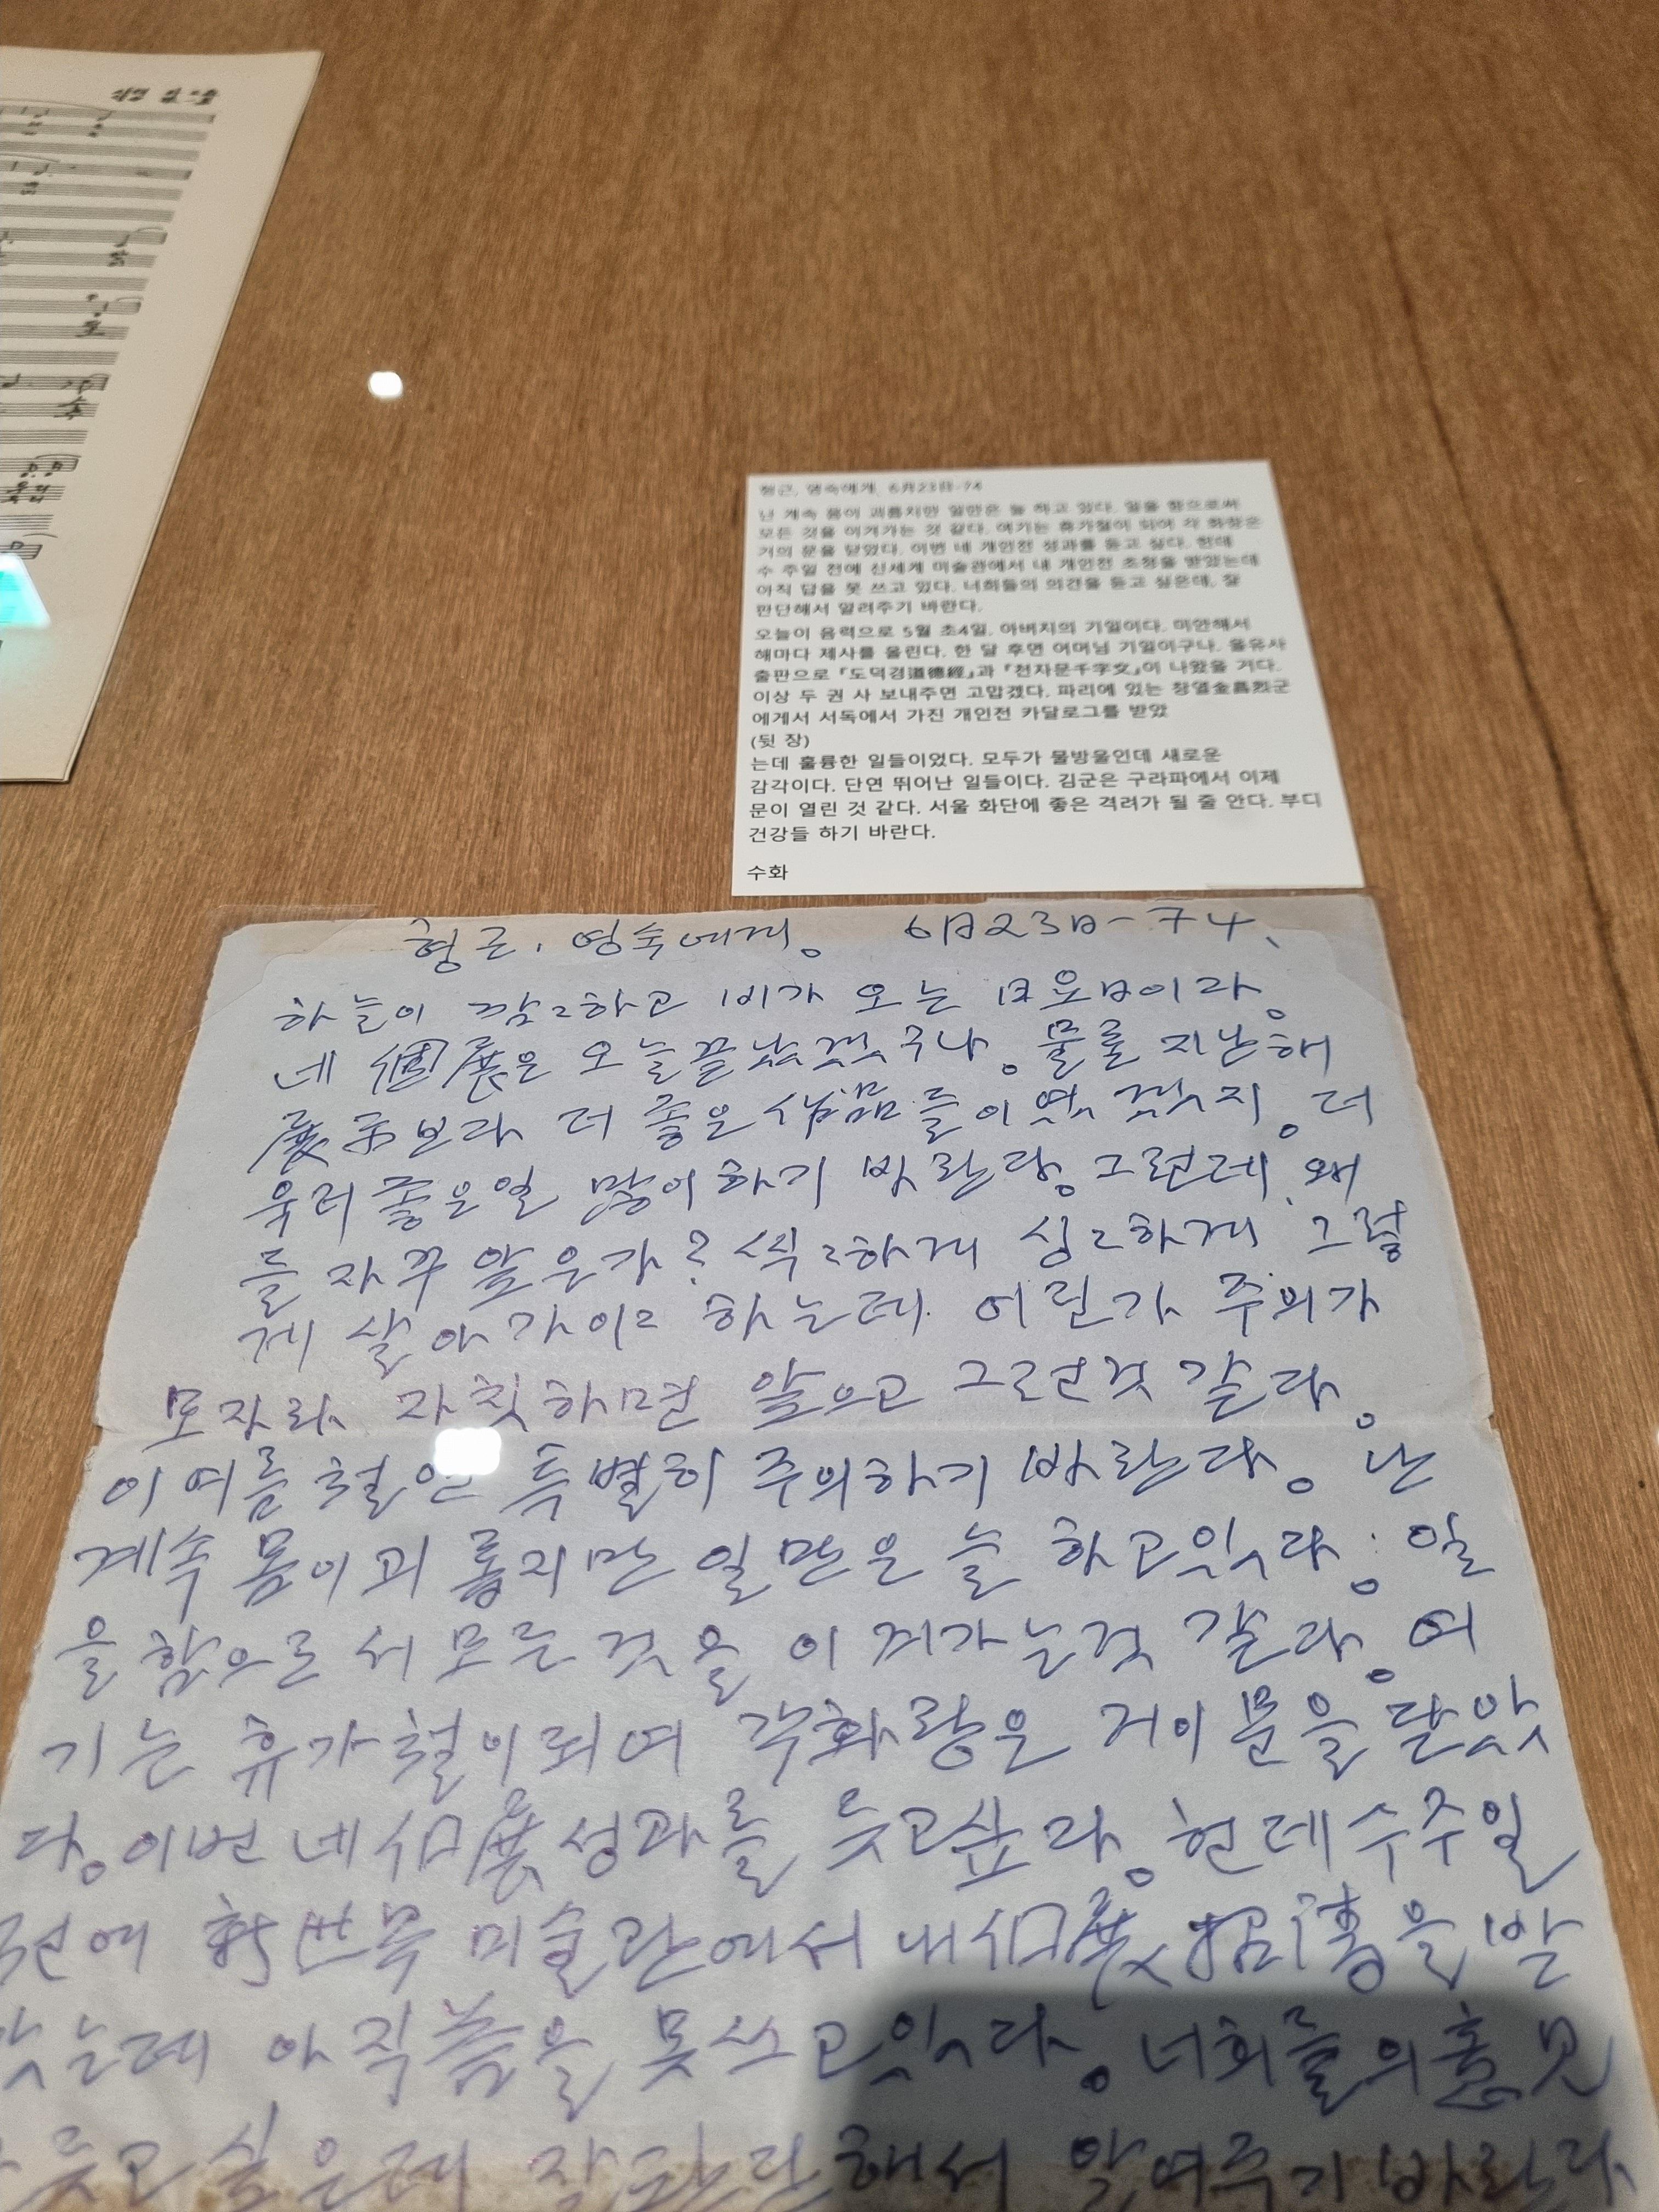 형근, 영숙에게, 6月23日-74
난 계속 몸이 괴롭지만 일만은 늘 하고 있다. 일을 함으로써
모든 것을 이겨가는 것 같다. 여기는 휴가철이 되어 각 화랑은
거의 문을 닫았다. 이번 네 개인전 성과를 듣고 싶다. 헌데
수 주일 전에 신세계 미술관에서 내 개인전 초청을 받았는데
아직 답을 못 쓰고 있다. 너희들의 의견을 듣고 싶은데, 잘
판단해서 알려주기 바란다.
오늘이 음력으로 5월 초4일. 아버지의 기일이다. 미안해서
해마다 제사를 올린다. 한 달 후면 어머님 기일이구나. 을유사
출판으로 『도덕경道德經』과 『천자문千字文』이 나왔을 거다.
이상 두 권 사 보내주면 고맙겠다. 파리에 있는 창열金昌烈군
에게서 서독에서 가진 개인전 카달로그를 받았
(뒷 장)
는데 훌륭한 일들이었다. 모두가 물방울인데 새로운
감각이다. 단연 뛰어난 일들이다. 김군은 구라파에서 이제
문이 열린 것 같다. 서울 화단에 좋은 격려가 될 줄 안다. 부디
건강들 하기 바란다.
수화
형근, 영숙에게. 6月23日-74、
하늘이 깜〻하고 비가 오는 日요日이다。
네 個展은 오늘끝났겠구나。물론 지난해
展示보다 더 좋은 作品들이였겠지。더
욱 더 좋은일 많이하기 바란다。그런데 왜
들 자꾸 앓은가? 씩〻하게 싱〻하게 그렇
게 살아가야 하는데 어딘가 주의가
모자라 자칫하면 앓으고 그런것 같다。
이 여름철은 특별히 주의하기 바란다。난
계속 몸이괴롭지만 일만은 늘 하고있다; 일
을 함으로서 모든것을 이겨가는것 같다。여
기는 휴가철이되여 각화랑은 거이문을 닫았
다。이번 네 個展성과를 듯고싶다。헌데수주일
전에 新世界 미술관에서 내個展 招請을 받
았는데 아직 答을 못쓰고있다。너희들의意見
듯고싶은데 잘 판단해서 알여주기바란다